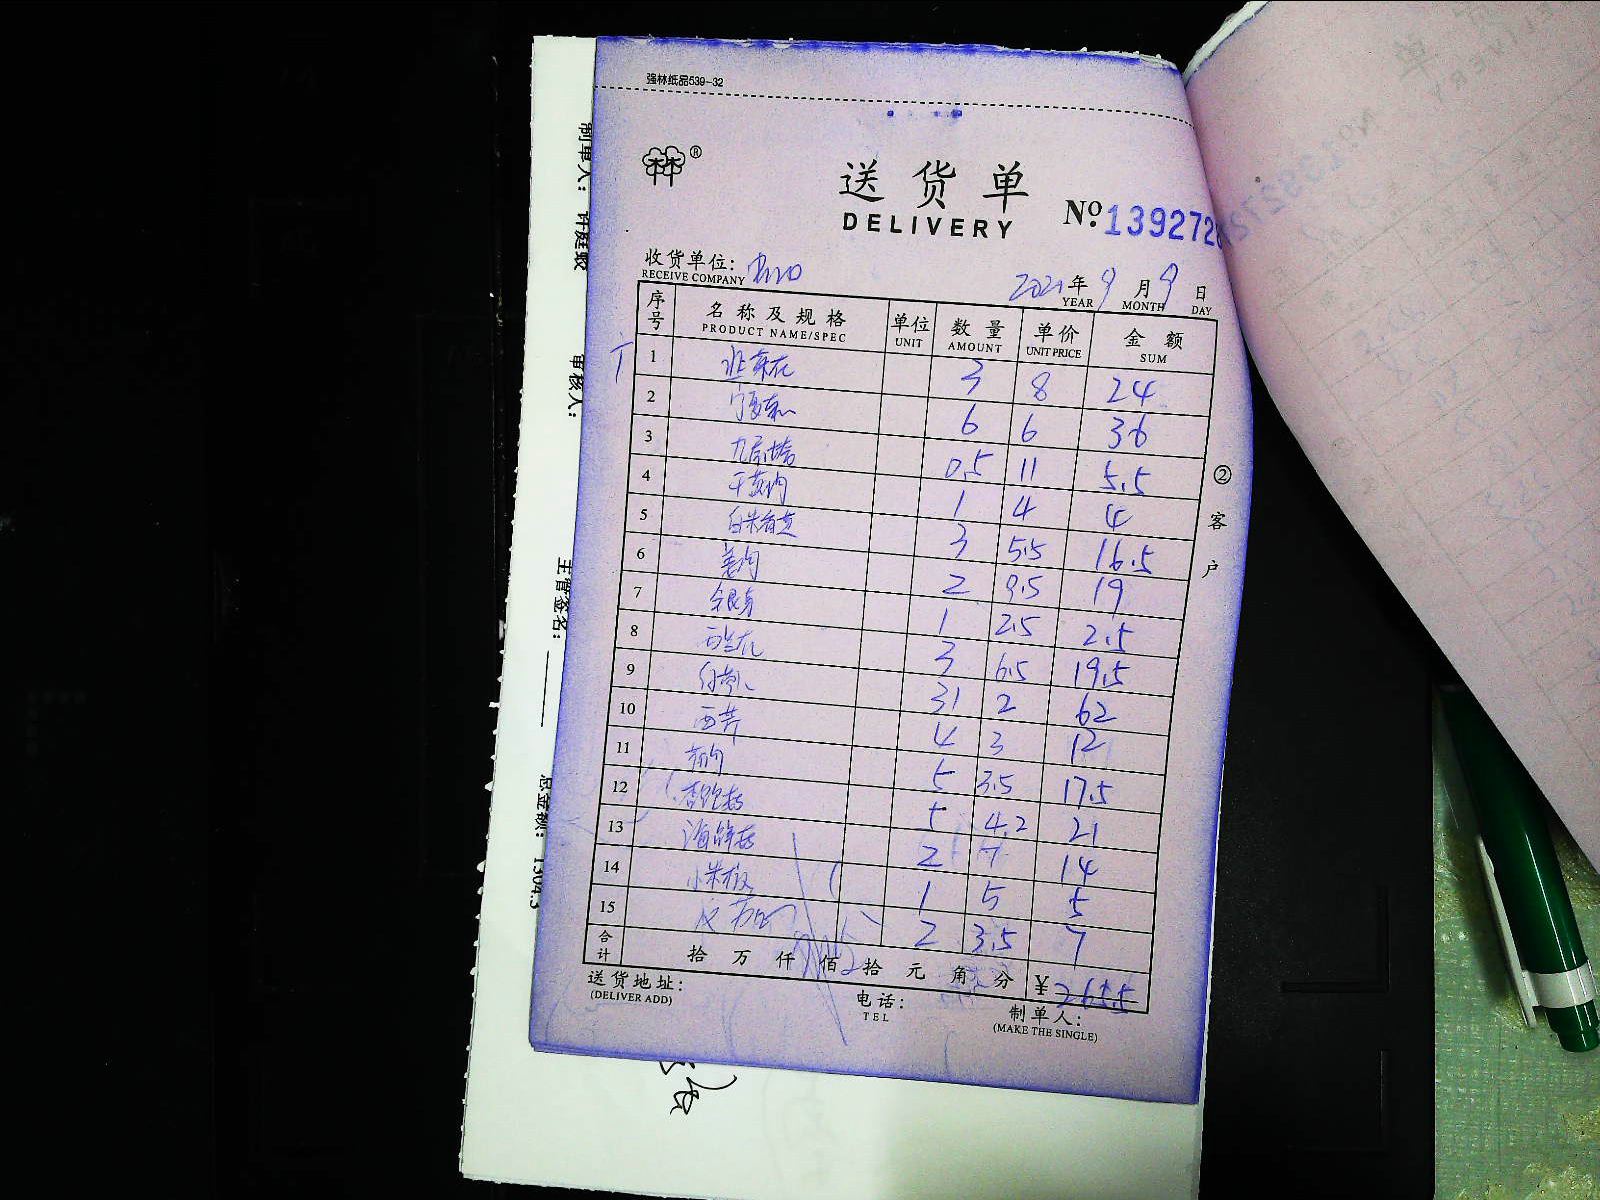 强林纸品539-32
林®
送货单
DELIVERY
№ 1392726
收货单位:
RECEIVE COMPANY
2021年9月9日
YEAR MONTH DAY
序号 名称及规格 单位 数量 单价 金额
PRODUCT NAME/SPEC UNIT AMOUNT UNIT PRICE SUM
1 韭菜花 3 8 24
2 6 6 36
3 九层塔 0.5 11 5.5
4 1 4 4
5 3 5.5 16.5
6 姜肉 2 9.5 19
7 1 2.5 2.5
8 西兰花 3 6.5 19.5
9 31 2 62
10 西芹 4 3 12
11 5 3.5 17.5
12 杏鲍菇 5 4.2 21
13 海鲜菇 2 7 14
14 小米椒 1 5 5
15 2 3.5 7
合计 拾 万 仟 佰 拾 元 角 分 ¥265.5
送货地址:
(DELIVER ADD)
电话:
TEL
制单人:
(MAKE THE SINGLE)
②客户
制单人: 许庭
审核人:
主管签名:
总金额: 1304.3